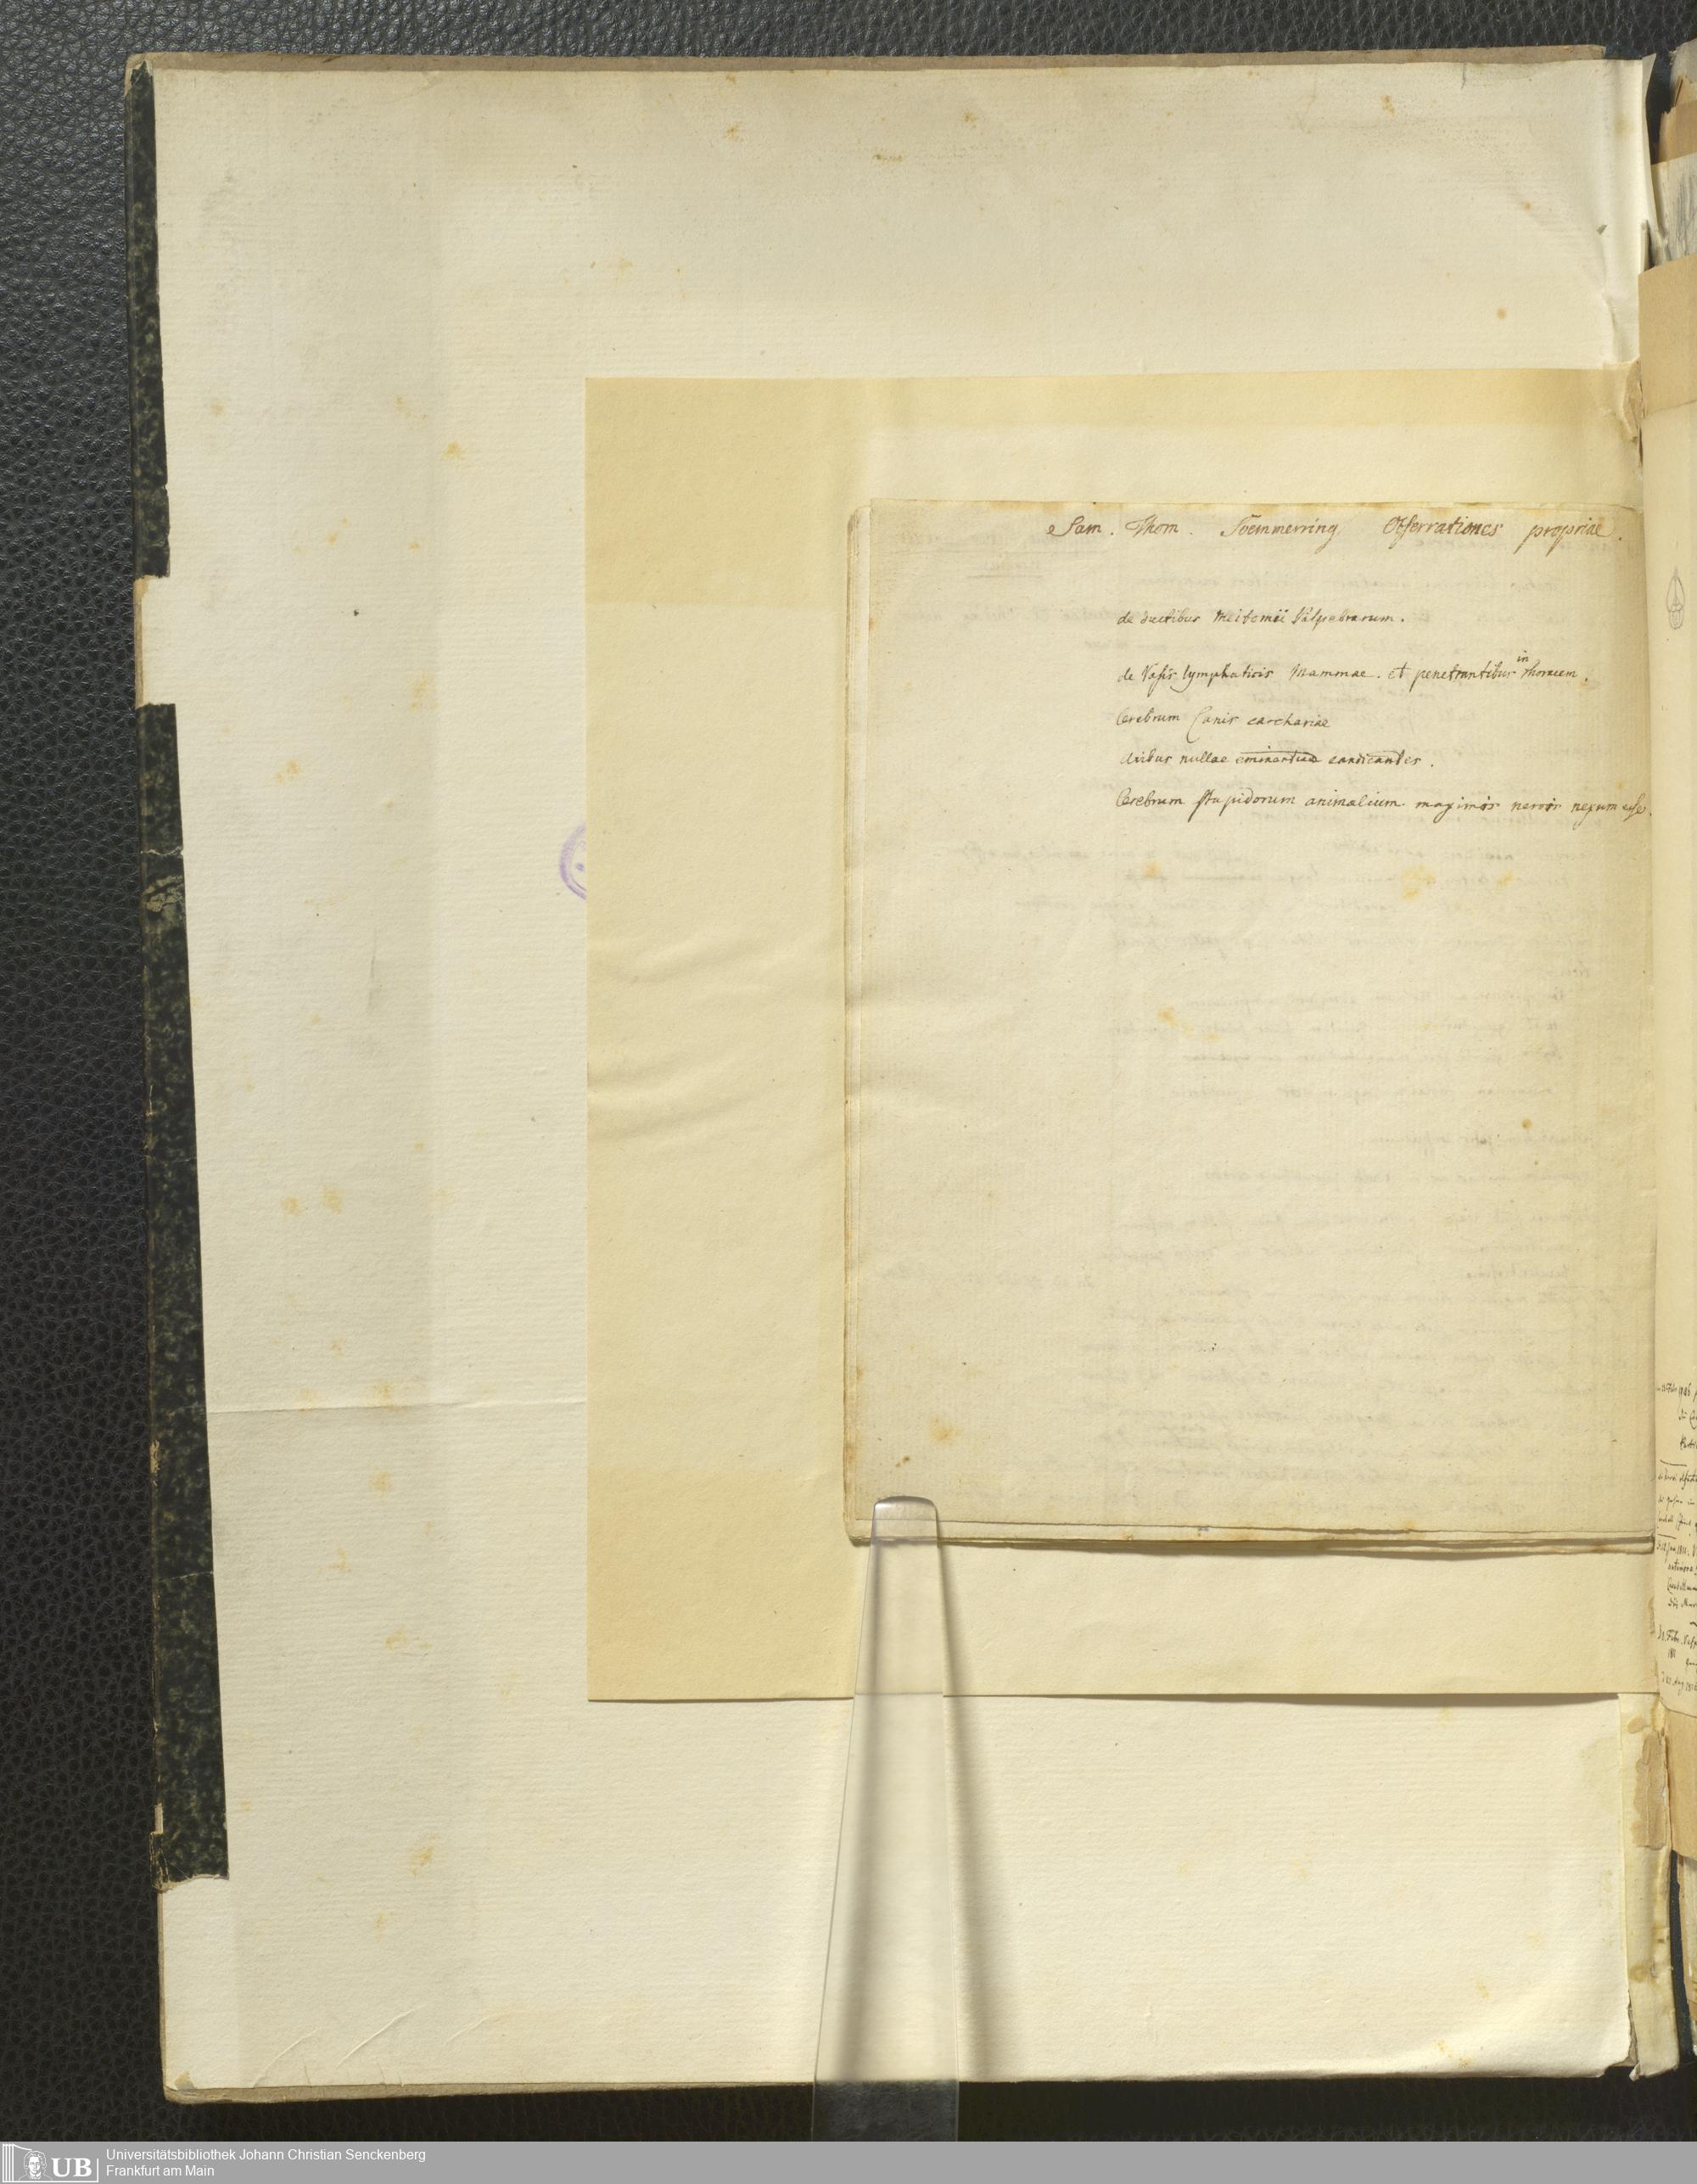 Sam. Thom. Soemmerring Observationes propriae.
de ductibus Meibomii Palpebrarum.
de Vasis lymphaticis Mammae. et penetrantibus in thoracem.
Cerebrum Canis carchariae
Avibus nullae eminentiae candicantes.
Cerebrum stupidorum animalium maximis nervis nexum esse.
UB
Universitätsbibliothek Johann Christian Senckenberg
Frankfurt am Main